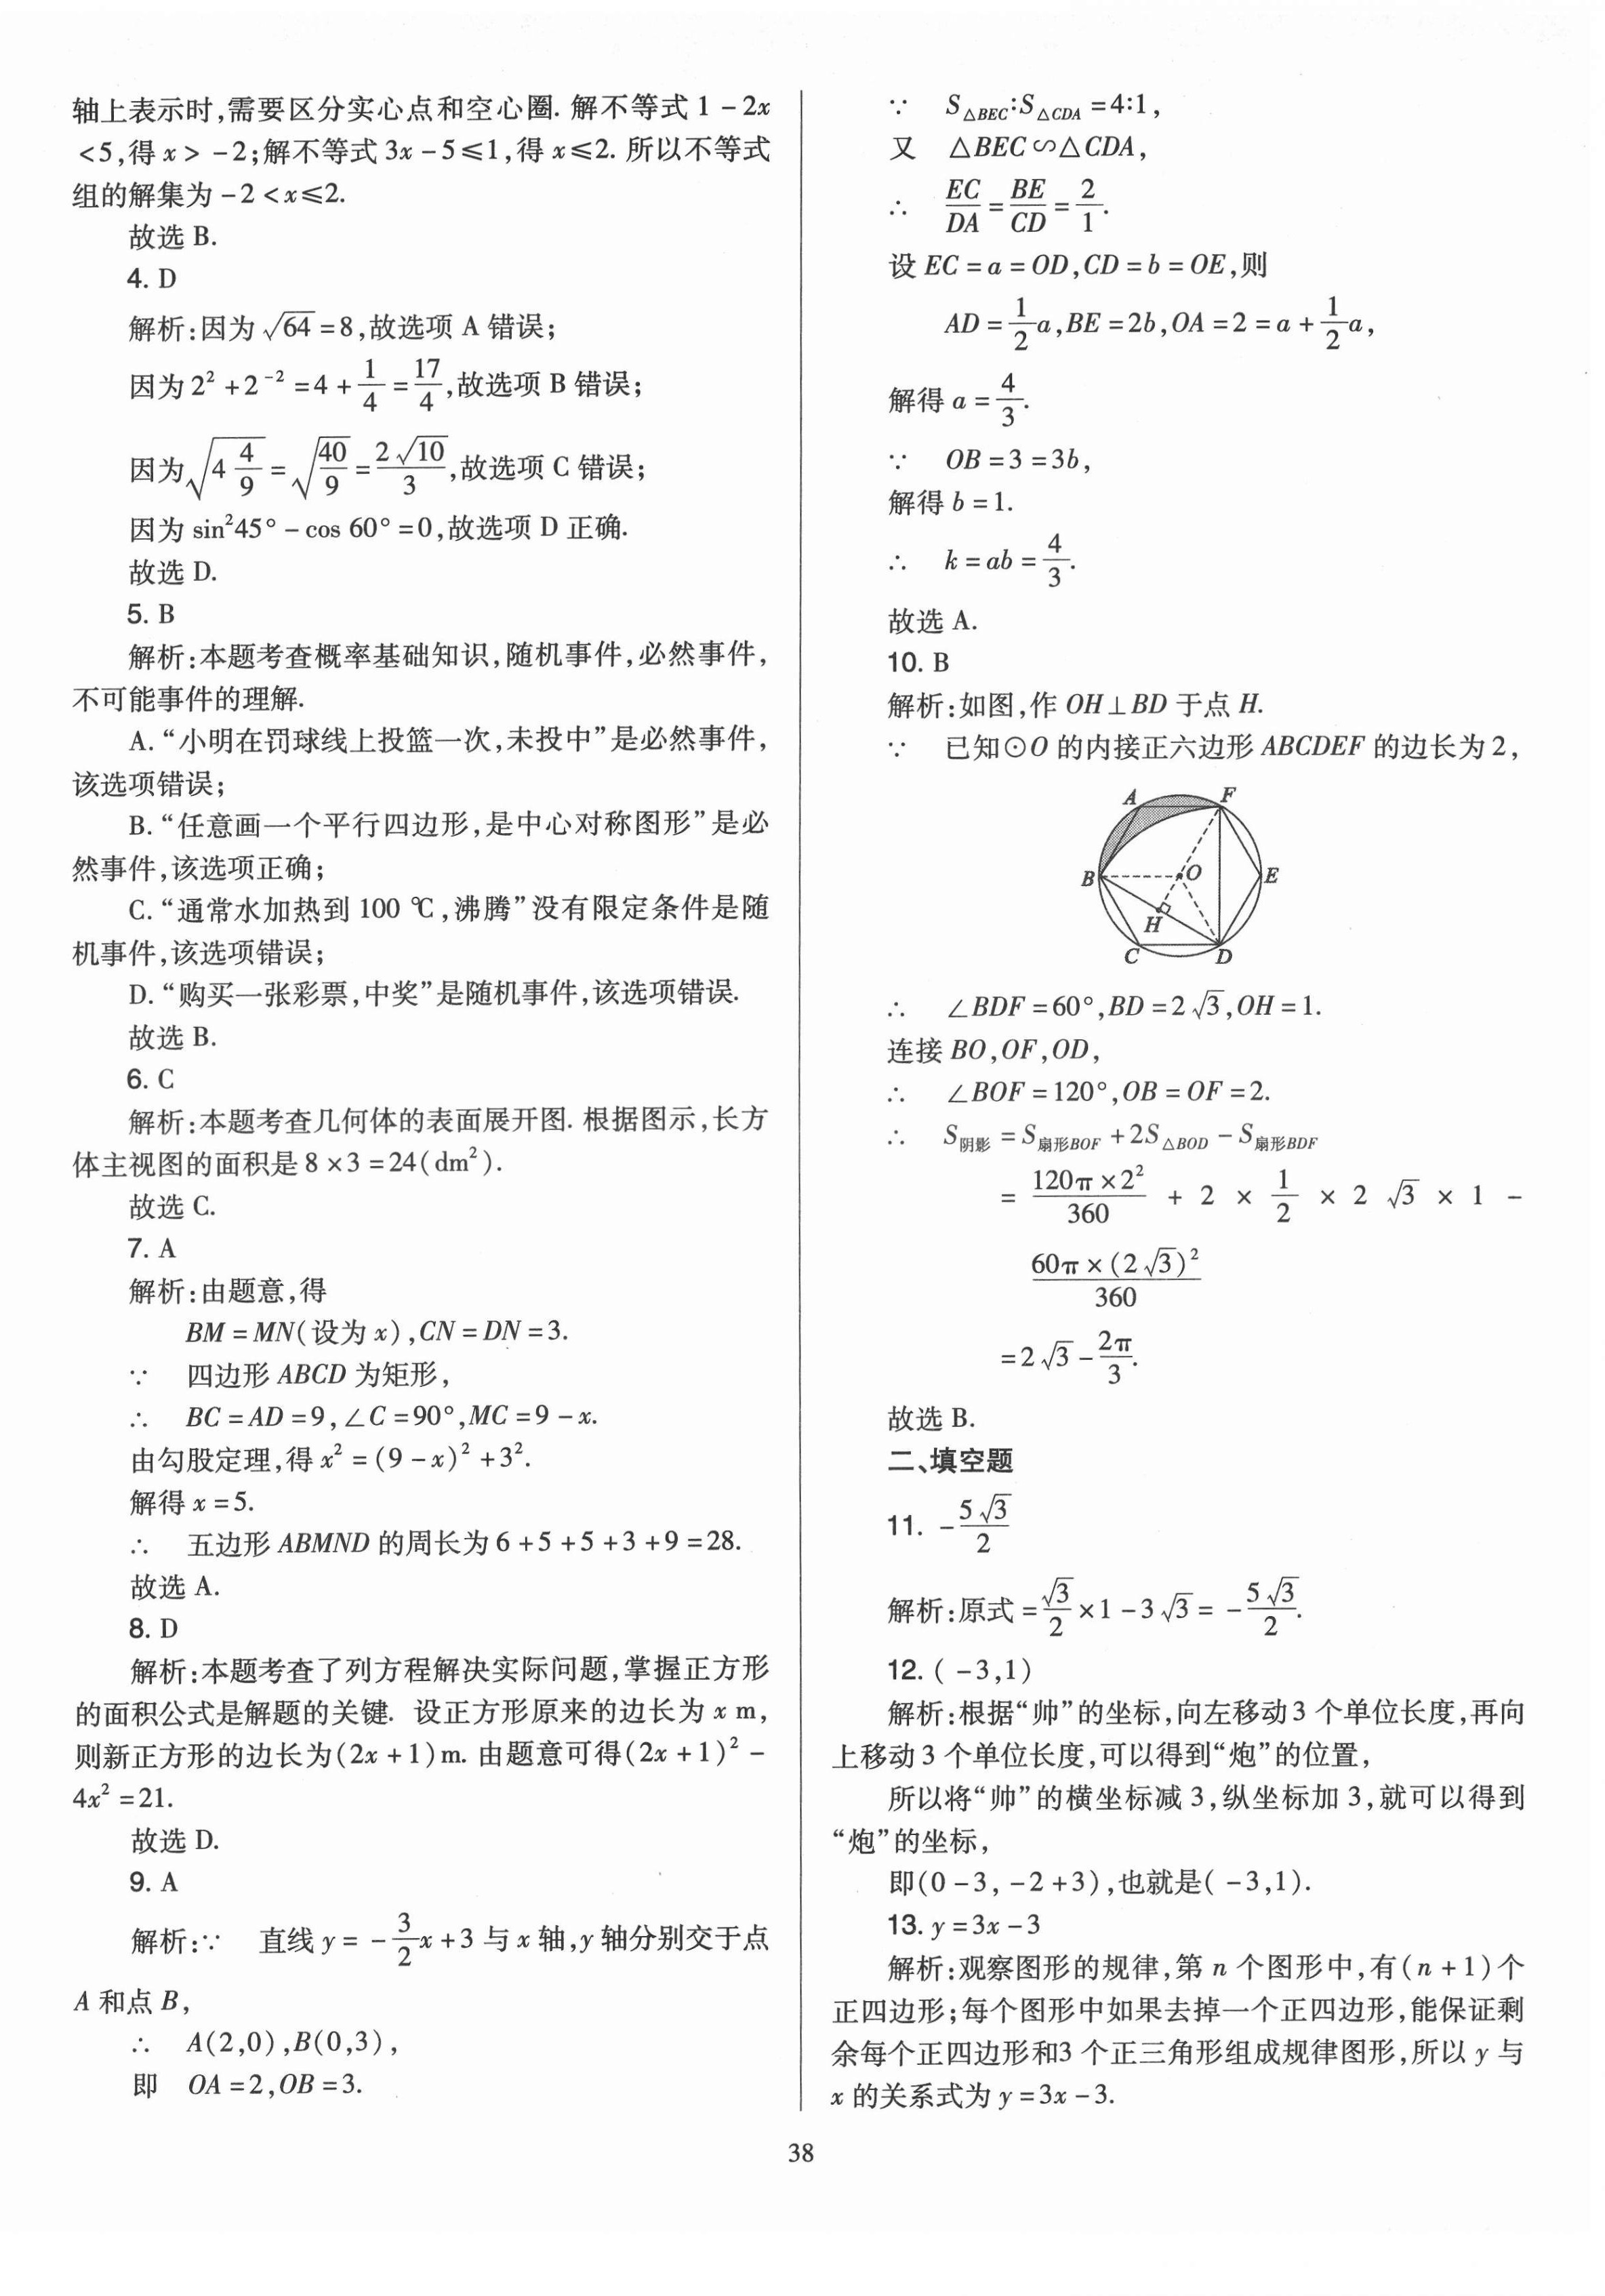 轴上表示时,需要区分实心点和空心圈. 解不等式 1 - 2x
<5,得 x > -2;解不等式 3x - 5 ≤ 1,得 x ≤ 2. 所以不等式
组的解集为 -2 < x ≤ 2.
故选 B.
4. D
解析:因为 √64 = 8,故选项 A 错误;
因为 2² + 2⁻² = 4 + 1/4 = 17/4,故选项 B 错误;
因为 √(4 4/9) = √(40/9) = 2√10/3,故选项 C 错误;
因为 sin²45° - cos 60° = 0,故选项 D 正确.
故选 D.
5. B
解析:本题考查概率基础知识,随机事件,必然事件,
不可能事件的理解.
A. “小明在罚球线上投篮一次,未投中”是必然事件,
该选项错误;
B. “任意画一个平行四边形,是中心对称图形”是必
然事件,该选项正确;
C. “通常水加热到 100 ℃,沸腾”没有限定条件是随
机事件,该选项错误;
D. “购买一张彩票,中奖”是随机事件,该选项错误.
故选 B.
6. C
解析:本题考查几何体的表面展开图. 根据图示,长方
体主视图的面积是 8 × 3 = 24(dm²).
故选 C.
7. A
解析:由题意,得
BM = MN(设为 x),CN = DN = 3.
∵ 四边形 ABCD 为矩形,
∴ BC = AD = 9,∠C = 90°,MC = 9 - x.
由勾股定理,得 x² = (9 - x)² + 3².
解得 x = 5.
∴ 五边形 ABMND 的周长为 6 + 5 + 5 + 3 + 9 = 28.
故选 A.
8. D
解析:本题考查了列方程解决实际问题,掌握正方形
的面积公式是解题的关键. 设正方形原来的边长为 x m,
则新正方形的边长为(2x + 1)m. 由题意可得(2x + 1)² -
4x² = 21.
故选 D.
9. A
解析:∵ 直线 y = -3/2 x + 3 与 x 轴,y 轴分别交于点
A 和点 B,
∴ A(2,0),B(0,3),
即 OA = 2,OB = 3.
∵ S△BEC∶S△CDA = 4∶1,
又 △BEC∽△CDA,
∴ EC/DA = BE/CD = 2/1.
设 EC = a = OD,CD = b = OE,则
AD = 1/2 a,BE = 2b,OA = 2 = a + 1/2 a,
解得 a = 4/3.
∵ OB = 3 = 3b,
解得 b = 1.
∴ k = ab = 4/3.
故选 A.
10. B
解析:如图,作 OH⊥BD 于点 H.
∵ 已知⊙O 的内接正六边形 ABCDEF 的边长为 2,
A F
B O E
H
C D
∴ ∠BDF = 60°,BD = 2√3,OH = 1.
连接 BO,OF,OD,
∴ ∠BOF = 120°,OB = OF = 2.
∴ S阴影 = S扇形BOF + 2S△BOD - S扇形BDF
= 120π × 2²/360 + 2 × 1/2 × 2√3 × 1 -
60π × (2√3)²/360
= 2√3 - 2π/3.
故选 B.
二、填空题
11. -5√3/2
解析:原式 = √3/2 × 1 - 3√3 = -5√3/2.
12. ( -3,1)
解析:根据“帅”的坐标,向左移动 3 个单位长度,再向
上移动 3 个单位长度,可以得到“炮”的位置,
所以将“帅”的横坐标减 3,纵坐标加 3,就可以得到
“炮”的坐标,
即(0 - 3, -2 + 3),也就是( -3,1).
13. y = 3x - 3
解析:观察图形的规律,第 n 个图形中,有(n + 1)个
正四边形;每个图形中如果去掉一个正四边形,能保证剩
余每个正四边形和3 个正三角形组成规律图形,所以 y 与
x 的关系式为 y = 3x - 3.
38